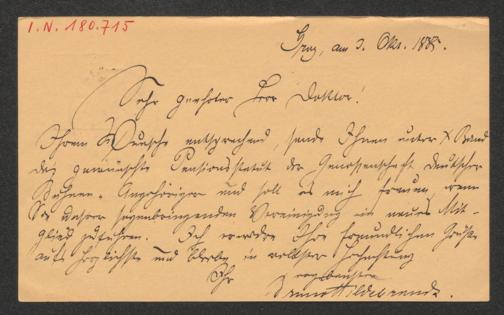 I.N. 180.715
Graz, am 3. Okt. 1885.
Sehr geehrter Herr Doktor!
Ihrem Wunsche entsprechend, sende Ihnen unter X Band
das gewünschte Pensionsstatut der Genossenschaft deutscher
Bühnen-Angehöriger und soll es mich freuen, wenn
Sie unserer segenbringenden Vereinigung ein neues Mit-
glied zuführen. Ich erwidre Ihre freundlichen Grüße
aufs herzlichste und bleibe in vollster Hochachtung
Ihr ergebenster
Bruno Hildebrandt.